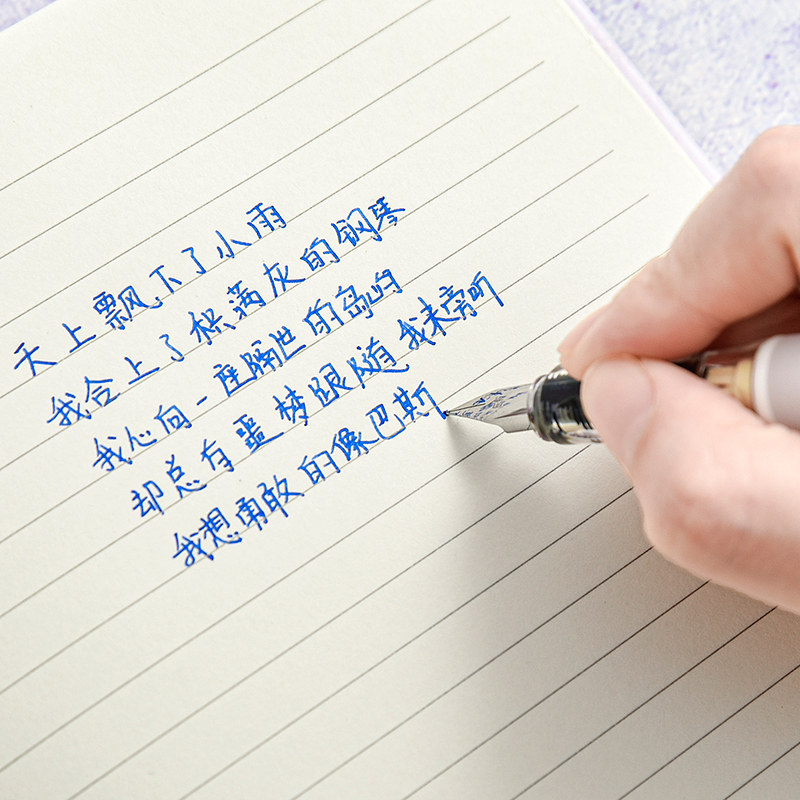 天上飘下了小雨
我合上了积满灰的钢琴
我心向一座隔世的岛屿
却总有噩梦跟随 我来旁听
我想勇敢的像巴斯